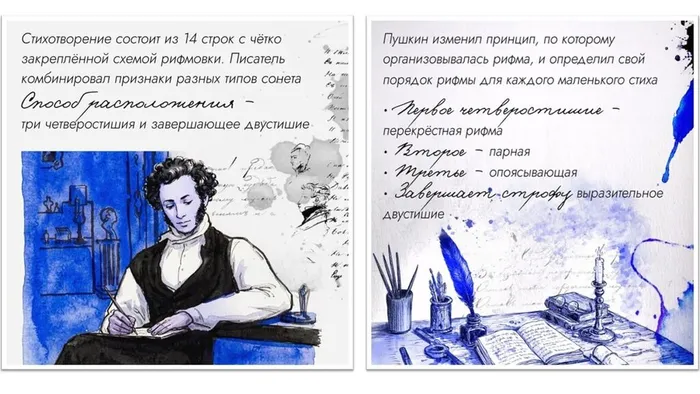 Стихотворение состоит из 14 строк с чётко
закреплённой схемой рифмовки. Писатель
комбинировал признаки разных типов сонета
Способ расположения –
три четверостишия и завершающее двустишие
Пушкин изменил принцип, по которому
организовывалась рифма, и определил свой
порядок рифмы для каждого маленького стиха
• Первое четверостишие –
перекрёстная рифма
• Второе – парная
• Третье – опоясывающая
• Завершает строфу выразительное
двустишие